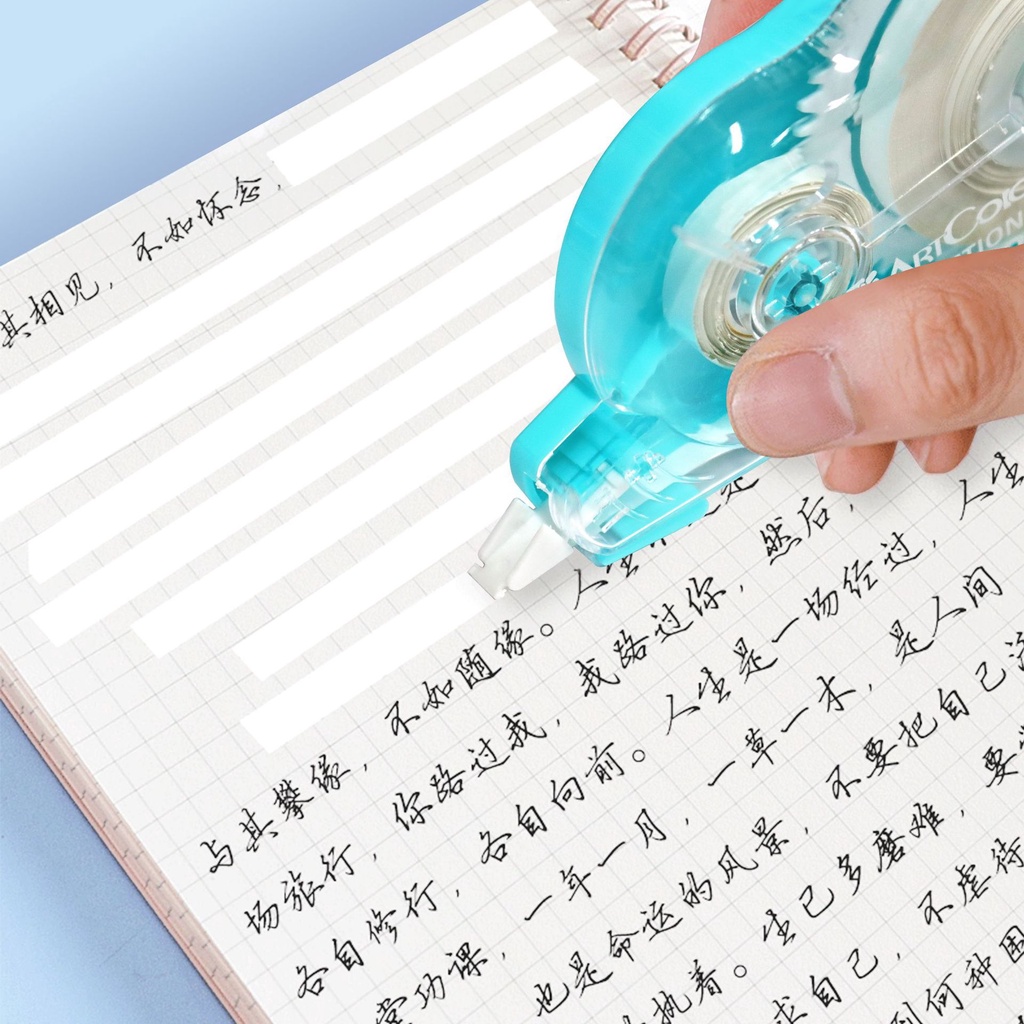 其相见，不如怀念，
与其攀缘，不如随缘。人生
场旅行，你路过我，我路过你，然后，
各自修行，各自向前。人生是一场经过，人生
功课，一年一月，一草一木，是人间
也是命运的风景，不要把自己
执着。生已多磨难，要
求自己，不虐待
到何种困
ARTCOLO
TION